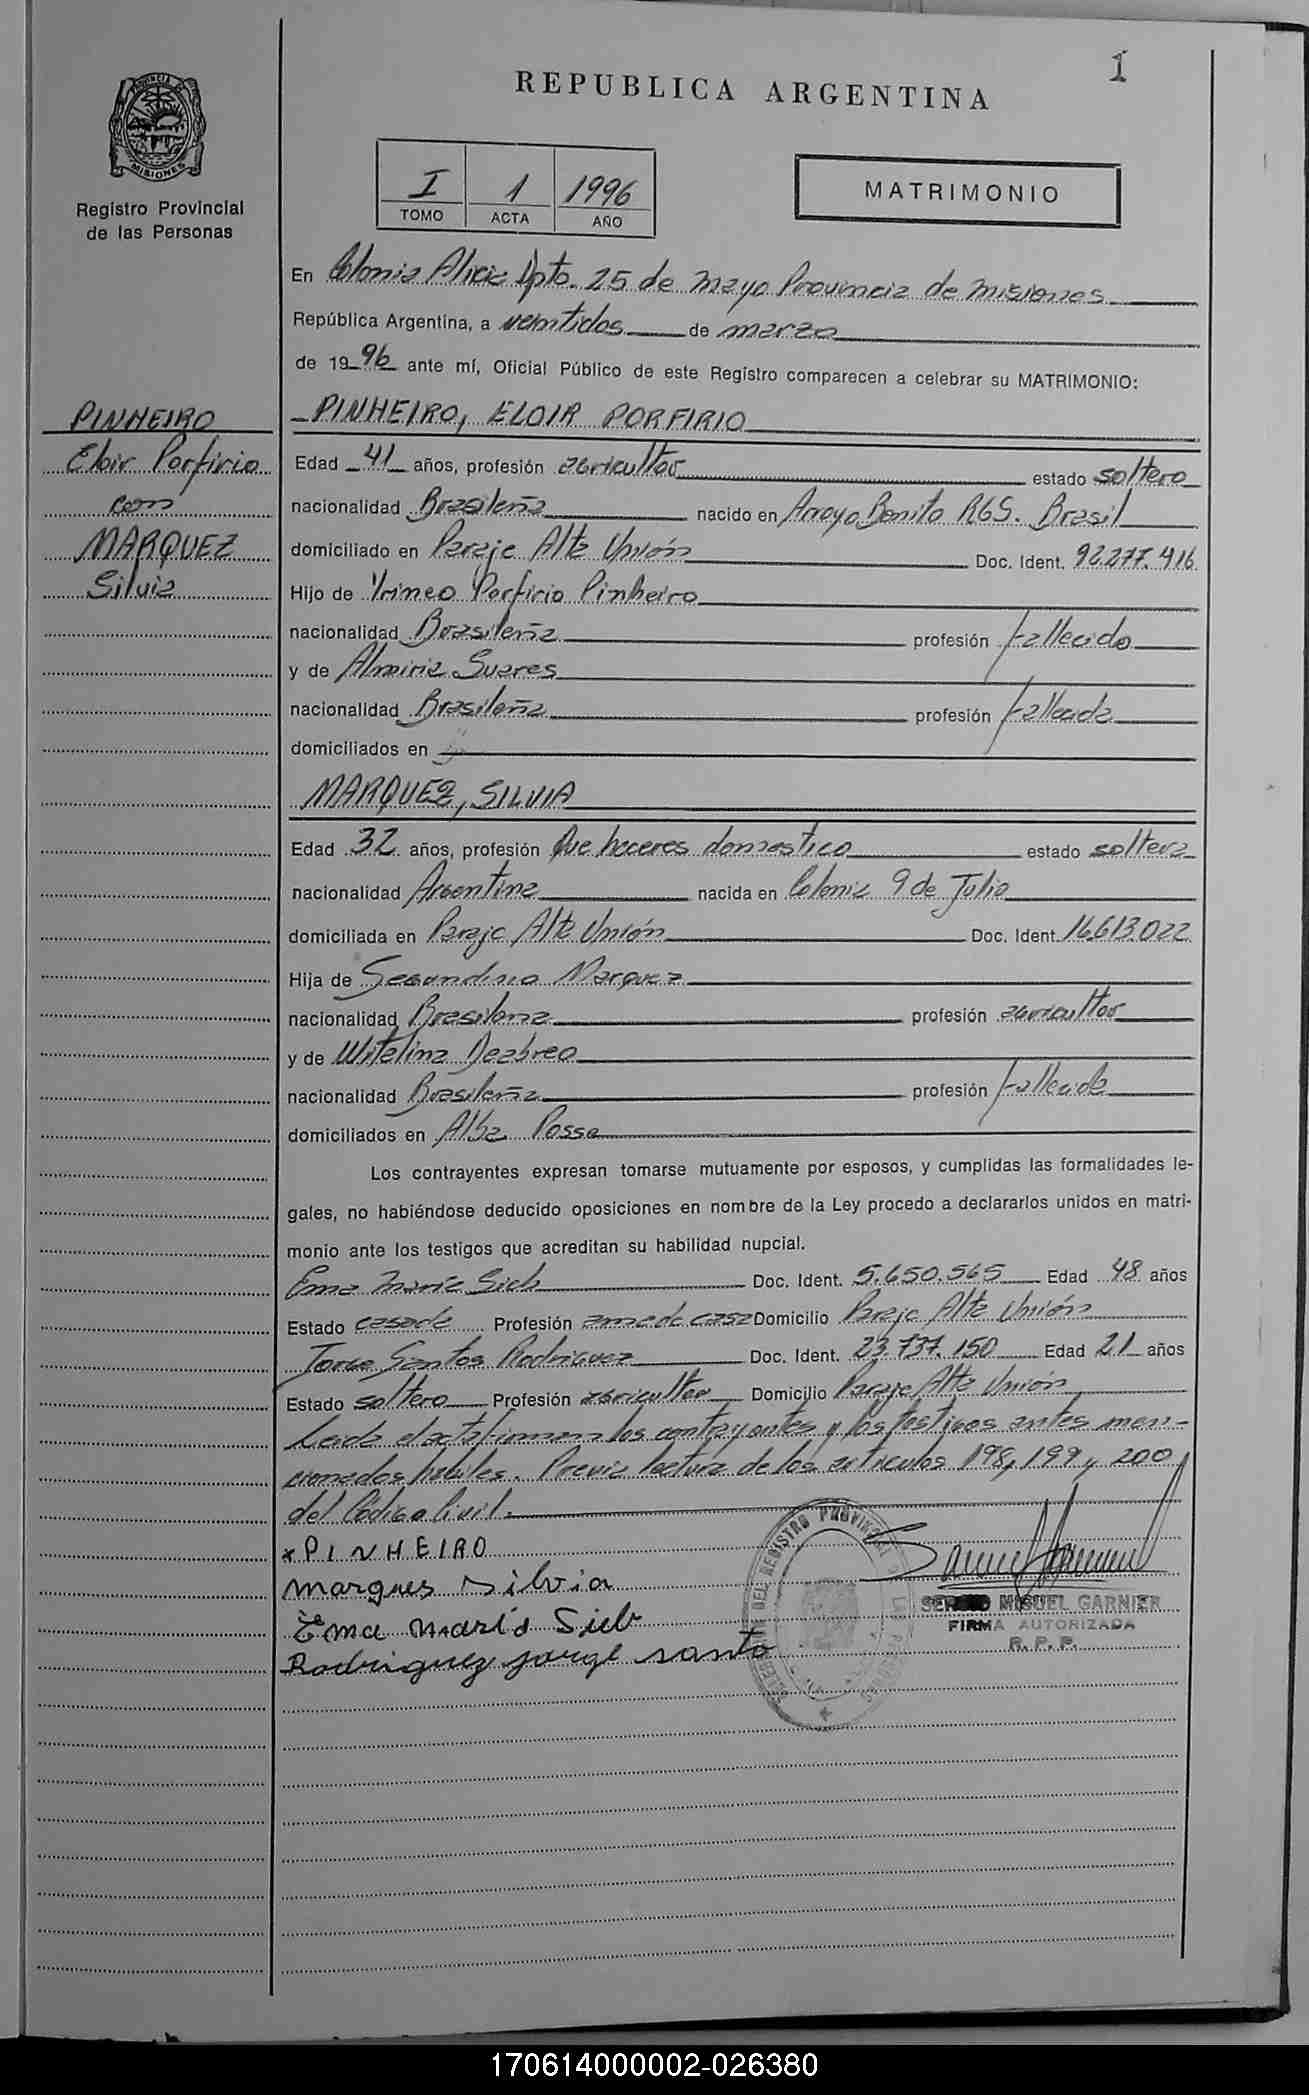 1
REPUBLICA ARGENTINA
PROVINCIA DE
MISIONES
Registro Provincial
de las Personas
I 1 1996
TOMO ACTA AÑO
MATRIMONIO
En Colonia Alicia Dpto. 25 de mayo Provincia de misiones
República Argentina, a veintidos de marzo
de 1996 ante mí, Oficial Público de este Registro comparecen a celebrar su MATRIMONIO:
PINHEIRO
Eloir Porfirio
con
MARQUEZ
Silvia
PINHEIRO, ELOIR PORFIRIO
Edad 41 años, profesión agricultor estado soltero
nacionalidad Brasileña nacido en Arroyo Bonito RGS. Brasil
domiciliado en Paraje Alta Unión Doc. Ident. 92.277.416
Hijo de Yrineo Porfirio Pinheiro
nacionalidad Brasileña profesión fallecido
y de Almiria Suares
nacionalidad Brasileña profesión fallecida
domiciliados en
MARQUEZ, SILVIA
Edad 32 años, profesión Que haceres domestico estado soltera
nacionalidad Argentina nacida en Colonia 9 de Julio
domiciliada en Paraje Alta Unión Doc. Ident. 16.613.022
Hija de Segundino Marquez
nacionalidad Brasilena profesión agricultor
y de Witalina Deabreo
nacionalidad Brasileña profesión fallecida
domiciliados en Alba Posse
Los contrayentes expresan tomarse mutuamente por esposos, y cumplidas las formalidades le-
gales, no habiéndose deducido oposiciones en nombre de la Ley procedo a declararlos unidos en matri-
monio ante los testigos que acreditan su habilidad nupcial.
Ema Maria Sieb Doc. Ident. 5.650.565 Edad 48 años
Estado casada Profesión ama de casa Domicilio Paraje Alta Unión
Jorge Santos Rodriguez Doc. Ident. 23.737.150 Edad 21 años
Estado soltero Profesión agricultor Domicilio Paraje Alta Unión
Leida el acta firman los contrayentes y los testigos antes men-
cionados habiles. Previa lectura de los articulos 198, 199 y 200
del Código Civil.
x PINHEIRO
marques Silvia
Ema maria Sieb
Rodriguez jorge santo
SERGIO MIGUEL GARNIER
FIRMA AUTORIZADA
R. P. P.
DEL REGISTRO PROVINCIAL DE LAS PERSONAS
170614000002-026380